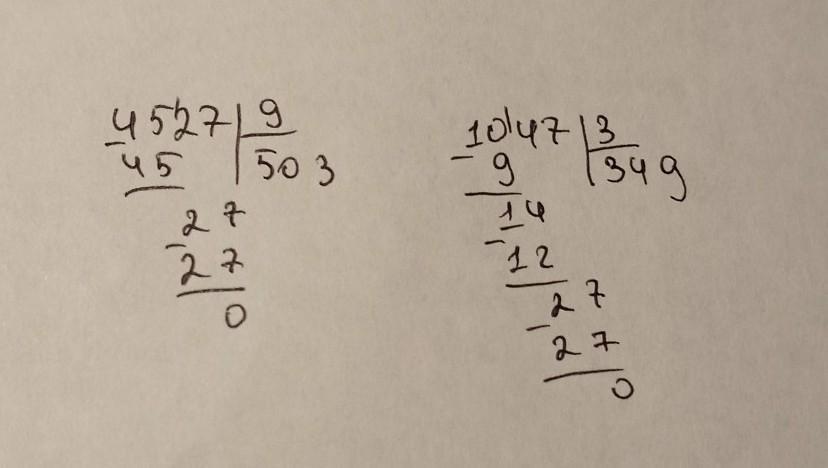 4527 9
45 503
27
27
0
1047 3
9 349
14
12
27
27
0